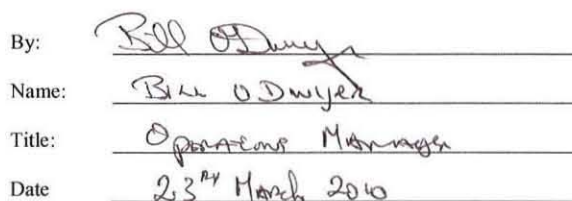 By: Bill O'Dwyer
Name: Bill O Dwyer
Title: Operations Manager
Date 23rd March 2010